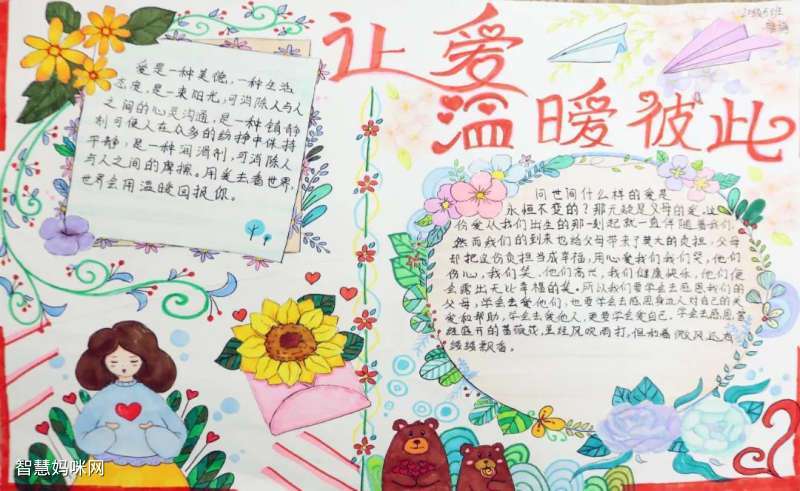 让爱
温暖彼此
爱是一种美德，一种生活
态度，是一束阳光，可消除人与人
之间的心灵沟通，是一种镇静
剂可使人在众多的纷挣中保持
平静，是一种润滑剂，可消除人
与人之间的摩擦。用爱去看世界，
世界会用温暖回报你。
问世间什么样的爱是
永恒不变的？那无疑是父母的爱，这
份爱从我们出生的那一刻起就一直伴随着我们，
然而我们的到来也给父母带来了莫大的负担，父母
却把这份负担当成幸福，用心爱我们我们哭，他们
伤心，我们笑，他们高兴，我们健康快乐，他们便
会露出无比幸福的笑。所以我们要学会去感恩我们的
父母，学会去爱他们，也要学会去感恩身边人对自己的关
爱和帮助，学会去爱他人，更要学会爱自己，学会去感恩，
盛开的蔷薇花，虽经风吹雨打，但和着微风还在
缓缓飘香。
智慧妈咪网